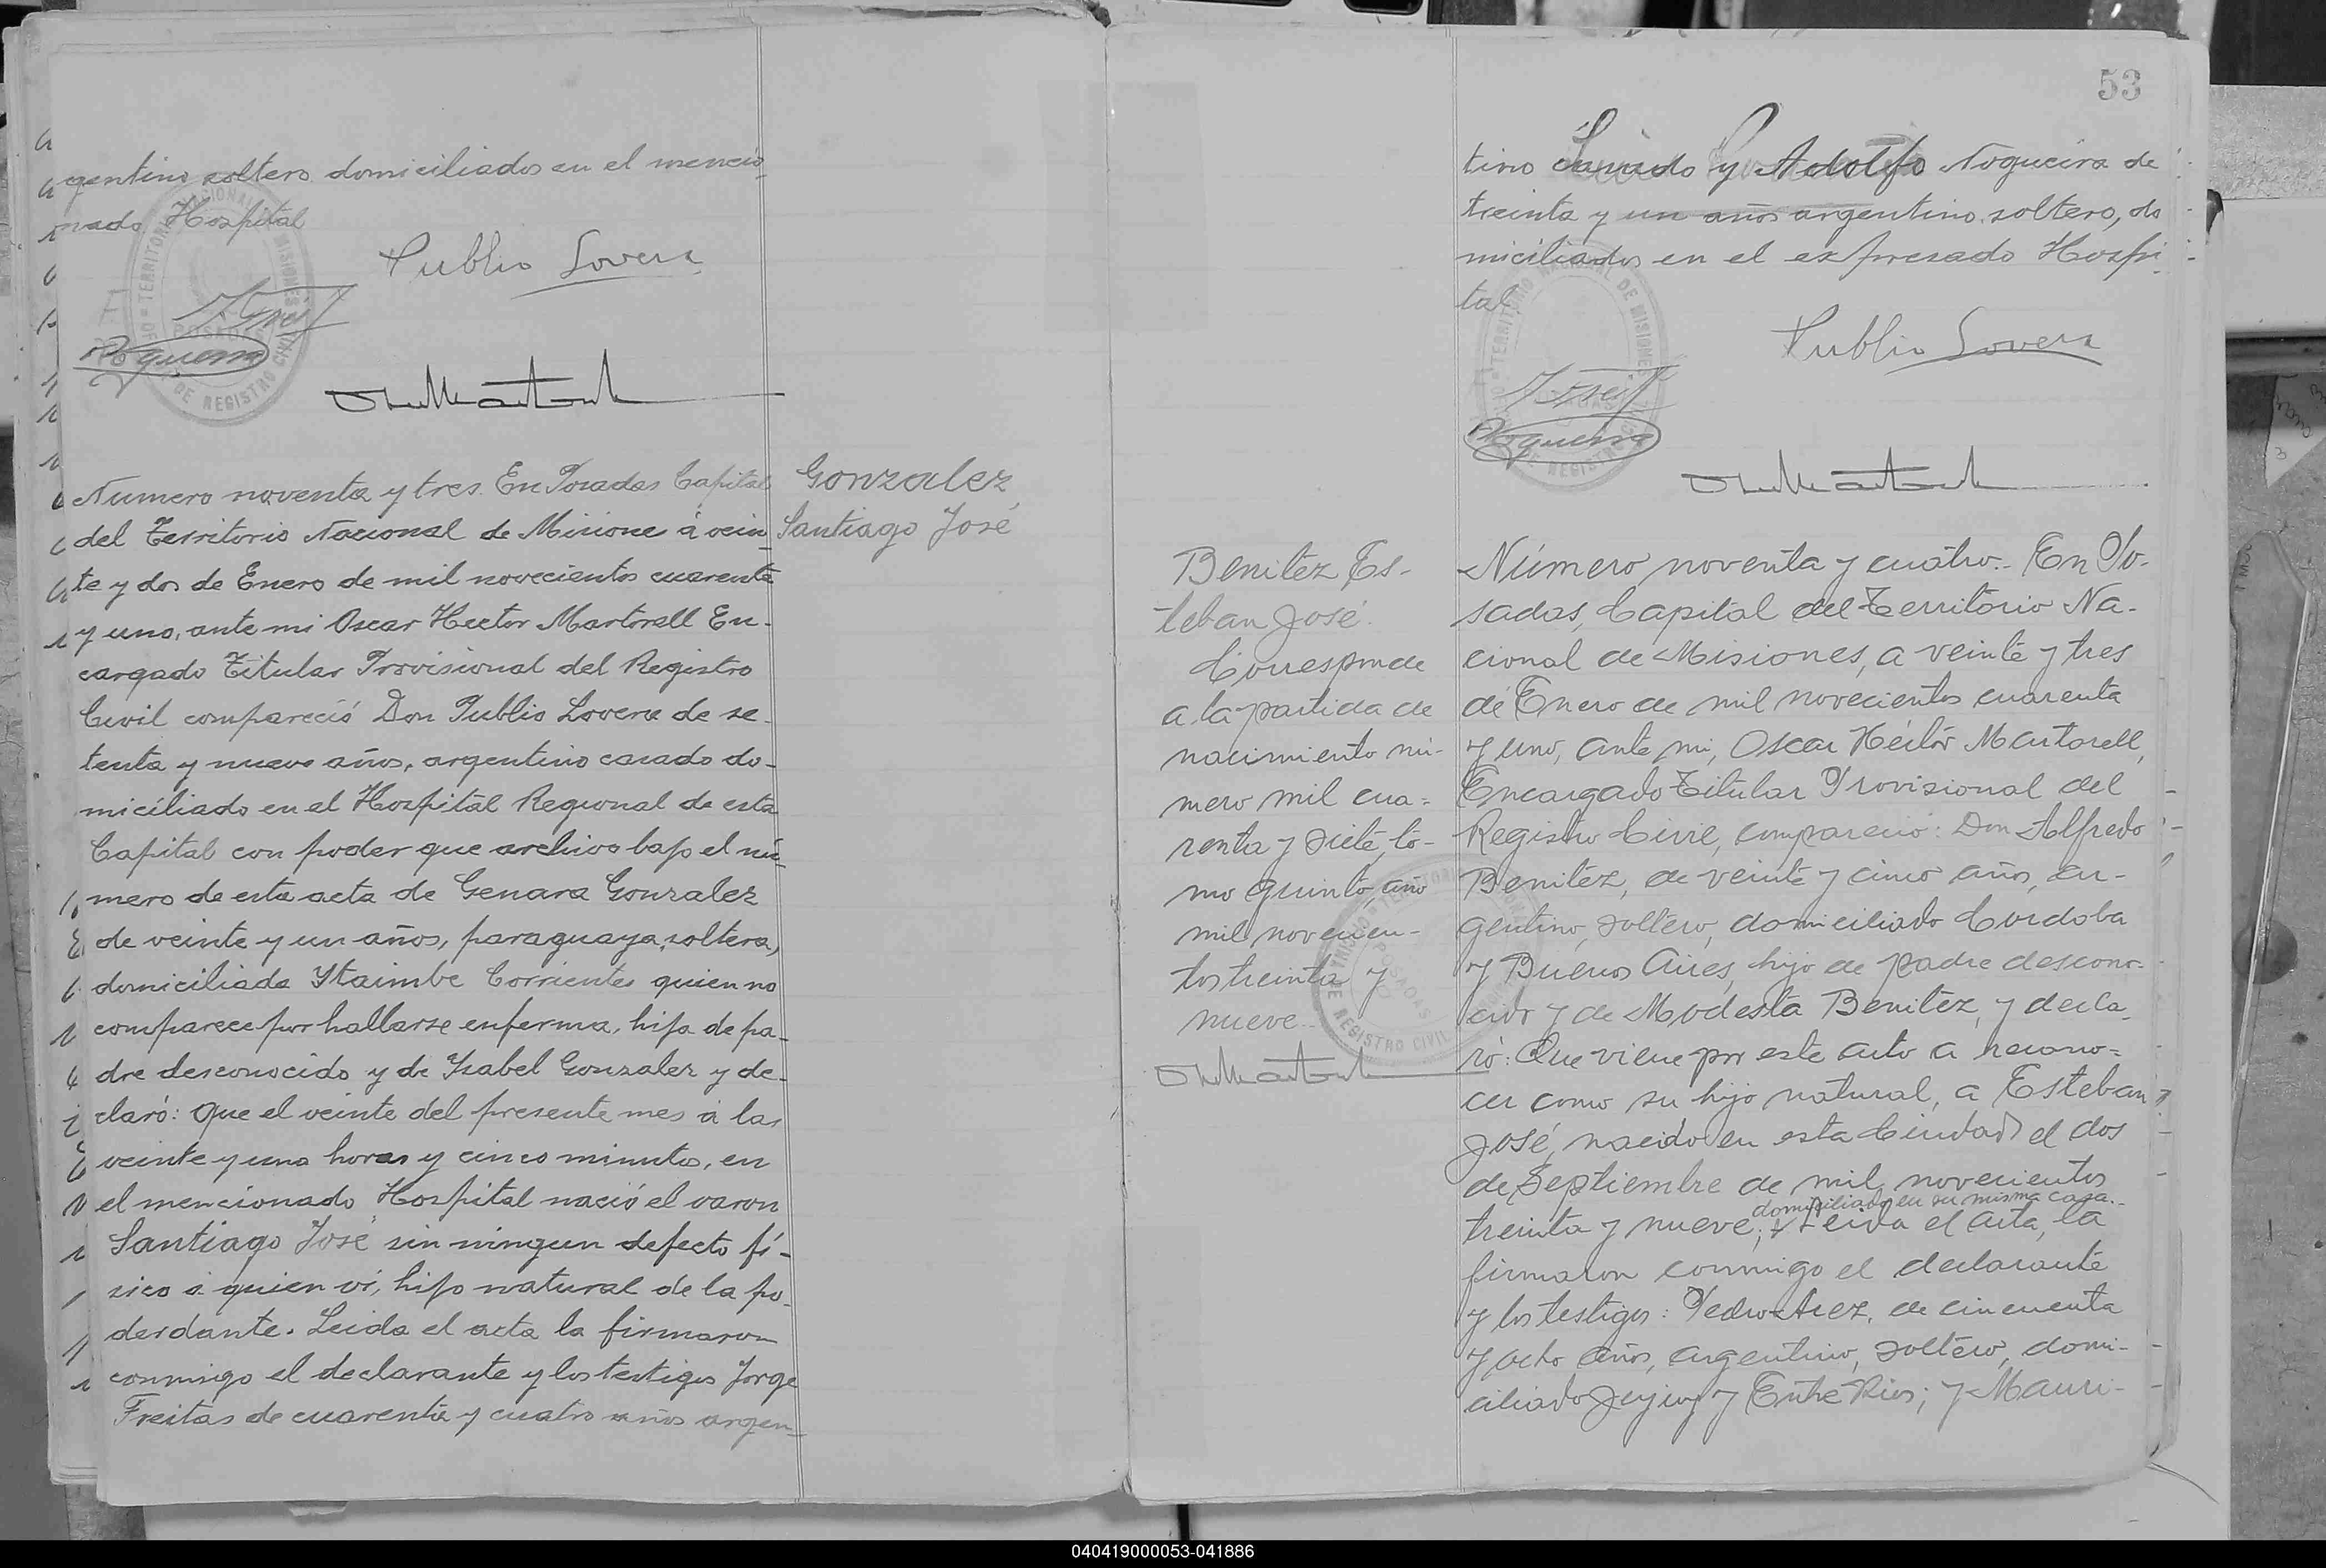 gentino soltero domiciliados en el mencio
nado Hospital
Publio Lovera
Noguera
Numero noventa y tres. En Posadas Capital
del Territorio Nacional de Misione á vein
te y dos de Enero de mil novecientos cuarenta
y uno, ante mi Oscar Hector Martorell En-
cargado Titular Provisional del Registro
Civil compareció Don Publio Lovera de se-
tenta y nueve años, argentino casado do-
miciliado en el Hospital Regional de esta
Capital con poder que archivo bajo el nú-
mero de esta acta de Genara Gonzalez
de veinte y un años, paraguaya, soltera,
domiciliada Ytaimbe Corrientes quien no
comparece por hallarse enferma, hija de pa-
dre desconocido y de Isabel Gonzalez y de-
claró: Que el veinte del presente mes á las
veinte y una horas y cinco minutos, en
el mencionado Hospital nació el varon
Santiago José sin ningun defecto fí-
sico á quien ví, hijo natural de la po-
derdante. Leida el acta la firmaron
conmigo el declarante y los testigos Jorge
Freitas de cuarenta y cuatro años argen-
Gonzalez
Santiago José
53
tino casado y Adolfo Nogueira de
treinta y un años argentino soltero, do
miciliados en el expresado Hospi-
tal
Publio Lovera
Noguera
Benitez Es-
teban José.
Corresponde
a la partida de
nacimiento nú-
mero mil cua-
renta y siete, to-
mo quinto, año
mil novecien-
tos treinta y
nueve.
Número noventa y cuatro.- En Po-
sadas, Capital del Territorio Na-
cional de Misiones, a veinte y tres
de Enero de mil novecientos cuarenta
y uno, ante mi, Oscar Héctor Martorell,
Encargado Titular Provisional del
Registro Civil, compareció: Don Alfredo
Benitez, de veinte y cinco años, ar-
gentino, soltero, domiciliado Cordoba
y Buenos Aires, hijo de padre descono-
cido y de Modesta Benitez, y decla-
ró: Que viene por este acto a recono-
cer como su hijo natural, a Esteban
José, nacido en esta Ciudad el dos
de Septiembre de mil novecientos
domiciliado en su misma casa.
treinta y nueve; Leida el acta, la
firmaron conmigo el declarante
y los testigos: Pedro de cincuenta
y ocho años, argentino, soltero, domi-
ciliado Jujuy y Entre Rios; y Mauri-
040419000053-041886